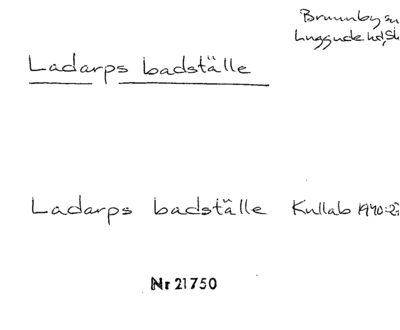 Brunnby sn
Luggude hd, Sk
Ladarps badställe
Ladarps badställe Kullab 1940:27
Nr 21750